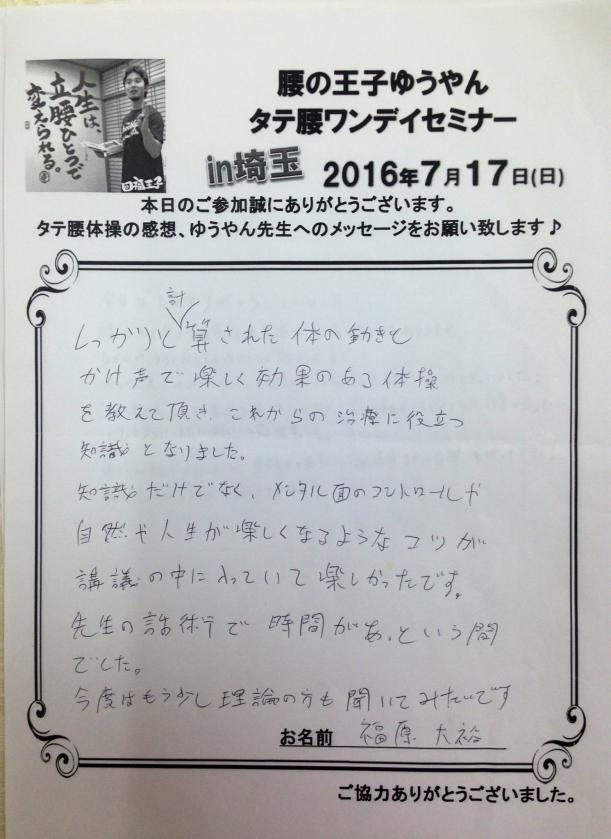 人生は、
立腰ひとつで
変えられる。
腰王子
腰の王子ゆうやん
タテ腰ワンデイセミナー
in埼玉 2016年7月17日(日)
本日のご参加誠にありがとうございます。
タテ腰体操の感想、ゆうやん先生へのメッセージをお願い致します♪
しっかりと計算された体の動きと
かけ声で楽しく効果のある体操
を教えて頂き、これからの治療に役立つ
知識となりました。
知識だけでなく、メンタル面のコントロールや
自然や人生が楽しくなるようなコツが
講義の中に入っていて楽しかったです。
先生の話術で時間があっという間
でした。
今度はもう少し理論の方も聞いてみたいです
お名前 福原 大裕
ご協力ありがとうございました。